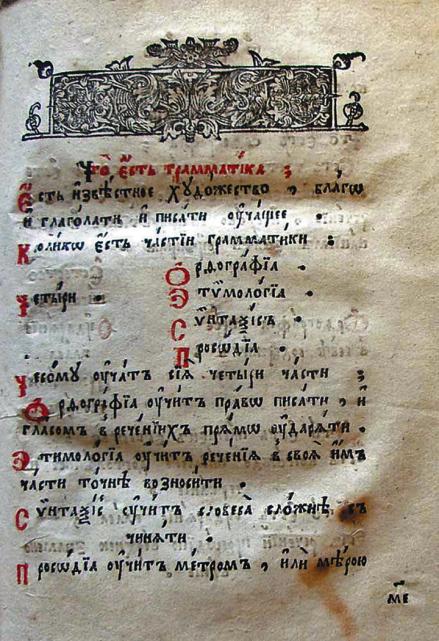 Что̀ є҆́сть грамматі́ка ;
Е҆́сть и҆звѣ́стное хꙋдо́жество , бла́гѡ
и҆ глаго́лати и҆ писа́ти ᲂу҆ча́щее .
Коли́кѡ є҆́сть ча́стїй грамма́тїки .
Ѻ҆рѳогра́фїа
Четы́ри . Э҆тѷмоло́гїа .
Сѵ́нтаѯїсъ .
Просѡ́дїа .
Чесомꙋ̀ ᲂу҆ча́тъ сїѧ̑ четы́ри ча́сти ;
Ѻ҆рѳогра́фїа ᲂу҆чи́тъ пра́вѡ писа́ти , и҆
гла́сомъ в̾ рече́нїихъ прѧ́мѡ ᲂу҆дарѧ́ти .
Э҆тимоло́гїа ᲂу҆чи́тъ рече́нїѧ в̾ своѧ̑ и҆̀мъ
ча́сти то́чнѣ возноси́ти .
Сѵ́нтаѯїсъ ᲂу҆чи́тъ словеса̀ сло́жнѣ съ
чинѧ́ти .
Просѡ́дїа ᲂу҆чи́тъ ме́тромъ , и҆лѝ мѣ́рою
ме